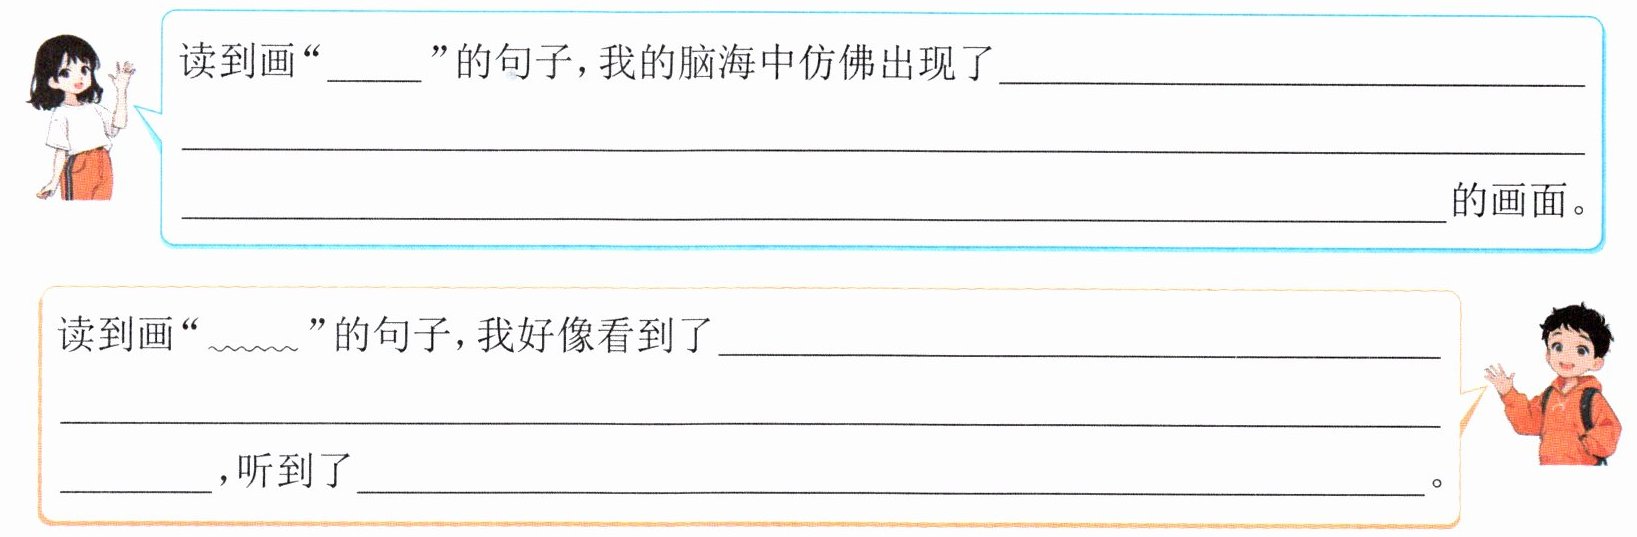 读到画“_____”的句子,我的脑海中仿佛出现了
的画面。
读到画“﹏﹏﹏”的句子,我好像看到了
,听到了 。